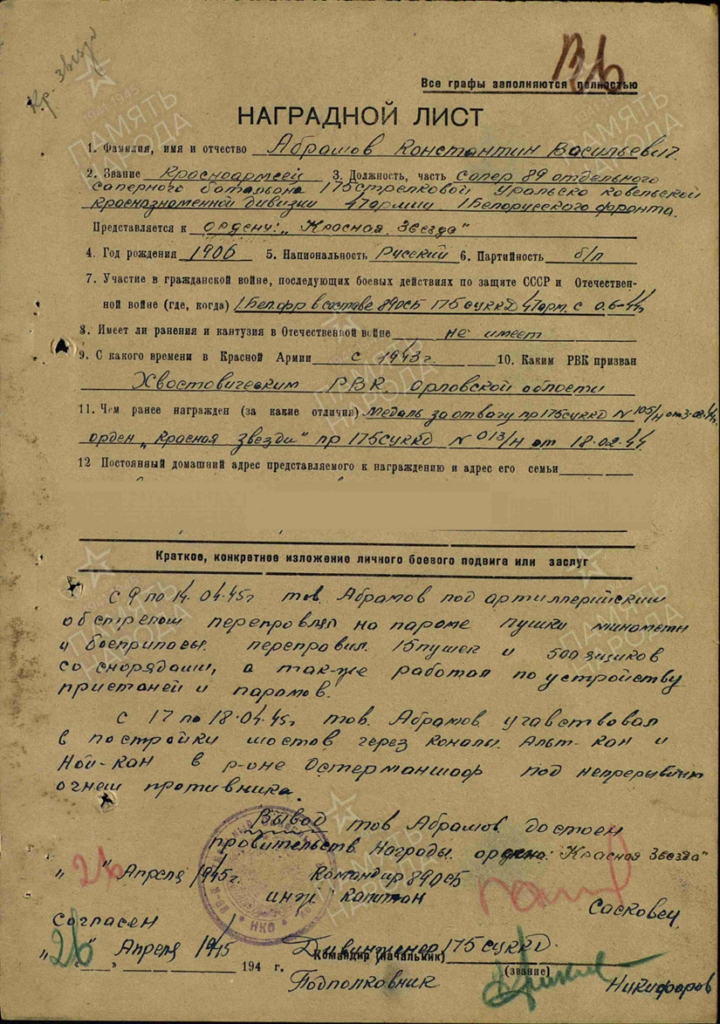 Кр. звезда
Все графы заполняются полностью
НАГРАДНОЙ ЛИСТ
1. Фамилия, имя и отчество Абрамов Константин Васильевич
2. Звание Красноармеец 3. Должность, часть сапер 89 отдельного
саперного батальона 175 стрелковой Уральско ковельской
краснознаменной дивизии 47 армии 1 Белорусского фронта.
Представляется к ордену: "Красная Звезда"
4. Год рождения 1906 5. Национальность Русский 6. Партийность б/п
7. Участие в гражданской войне, последующих боевых действиях по защите СССР и Отечествен-
ной войне (где, когда) 1 Бел.фр в составе 89 осб 175 сукkд 47 арм. с 06-44
8. Имеет ли ранения и кантузия в Отечественной войне не имеет
9. С какого времени в Красной Армии с 1943 г. 10. Каким РВК призван
Хвостовическим РВК Орловской области
11. Чем ранее награжден (за какие отличия) Медаль за отвагу пр 175 суккд N 105/н от
орден "Красная звезда" пр 175 суккд N 013/н от 18.02.44
12 Постоянный домашний адрес представляемого к награждению и адрес его семьи
Краткое, конкретное изложение личного боевого подвига или заслуг
С 9 по 14.04.45г тов. Абрамов под артиллерийским
обстрелом переправлял на пароме пушки минометы
и боеприпасы. переправил 15 пушек и 500 ящиков
со снорядами, а так-же работал по устройству
пристаней и паромов.
С 17 по 18.04.45г тов. Абрамов учавствовал
в постройки мостов через каналы Альт-кан и
Ной-кан в р-оне Остерманшоф под непрерывным
огнем противника.
Вывод тов Абрамов достоен
правительств Награды ордена: "Красная Звезда"
"26" Апреля 1945г. Командир 89 ОСБ
инж. Капитан Сасковец
Согласен
"26" Апреля 1945 Дивинженер 175 СУККД
194 г. Командир (начальник)
(звание)
Подполковник Никифоров
НКО
ПАМЯТЬ НАРОДА
1941-1945